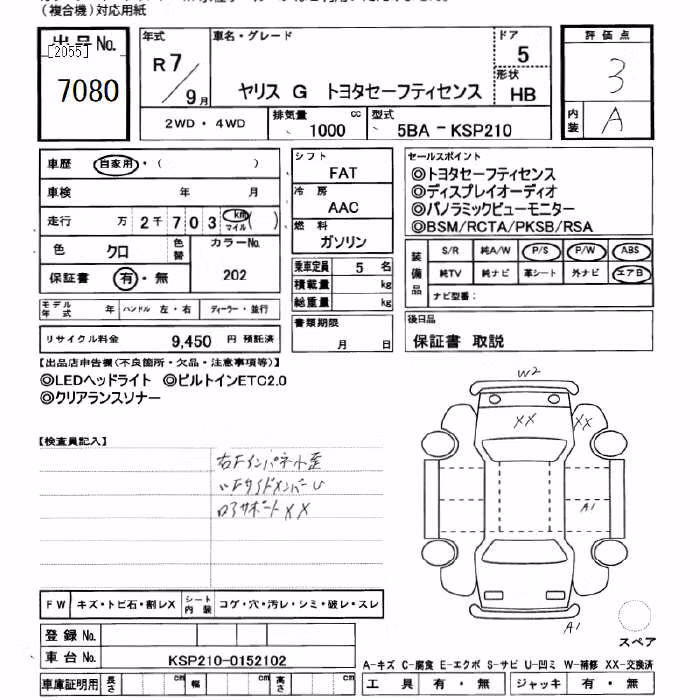 (複合機)対応用紙
出品No.
[2055]
7080
年式
R7/9月
車名・グレード
ヤリス G トヨタセーフティセンス
ドア
5
形状
HB
評価点
3
内装
A
2WD・4WD
排気量
1000 cc
型式
5BA-KSP210
車歴 自家用・( )
車検 年 月
走行 万 2千703 km マイル ( )
色 クロ 色替 カラーNo. 202
保証書 有・無
モデル年式 年 ハンドル 左・右 ディーラー・並行
リサイクル料金 9,450 円 預託済
シフト
FAT
冷房
AAC
燃料
ガソリン
乗車定員 5 名
積載量 kg
総重量 kg
書類期限
月 日
セールスポイント
◎トヨタセーフティセンス
◎ディスプレイオーディオ
◎パノラミックビューモニター
◎BSM/RCTA/PKSB/RSA
装備品
S/R 純A/W P/S P/W ABS
純TV 純ナビ 革シート 外ナビ エアB
ナビ型番:
後日品
保証書 取説
【出品店申告欄(不良箇所・欠品・注意事項等)】
◎LEDヘッドライト ◎ビルトインETC2.0
◎クリアランスソナー
【検査員記入】
右Fインパネ小歪
〃FサイドメンバーU
ロアサポートXX
W2
XX
XX
A1
A1
スペア
FW キズ・トビ石・割レX シート内装 コゲ・穴・汚レ・シミ・破レ・スレ
登録No.
車台No. KSP210-0152102
車庫証明用 長さ cm 幅 cm 高さ cm
A-キズ C-腐食 E-エクボ S-サビ U-凹ミ W-補修 XX-交換済
工具 有・無 ジャッキ 有・無